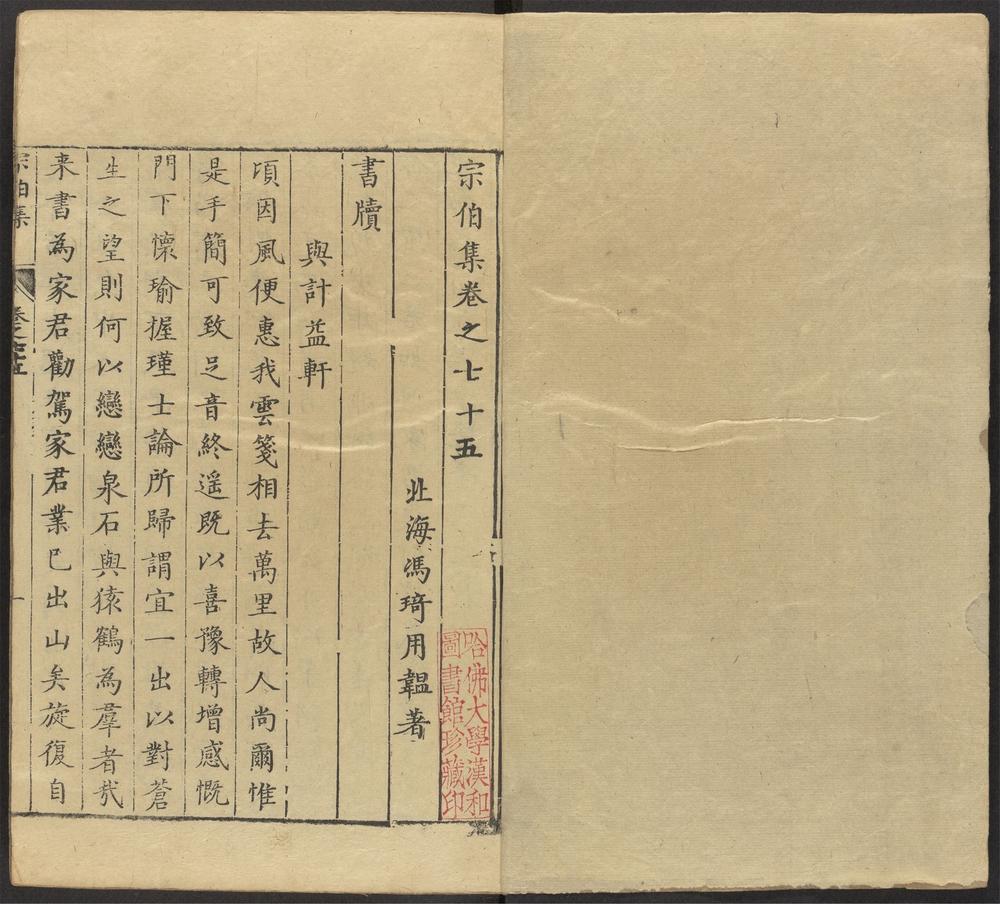 宗伯集卷之七十五
北海馮琦用韞著
書牘
與計益軒
頃因風便惠我雲箋相去萬里故人尚爾惟
是手簡可致足音終遥既以喜豫轉增感慨
門下懷瑜握瑾士論所歸謂宜一出以對蒼
生之望則何以戀戀泉石與猿鶴為羣者㢤
来書為家君勸駕家君業已出山矣旋復自
宗伯集
卷之七十五
一
哈佛大學漢和
圖書館珍藏印